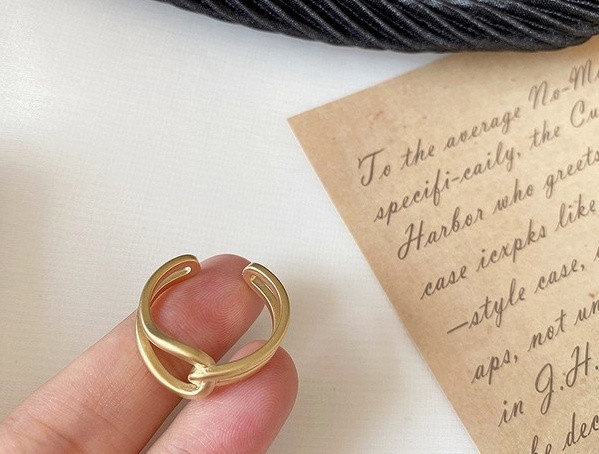 To the average No-M
specifi-caily, the Cu
Harbor who greets
case icxpks like
—style case,
aps, not un
in G.H.
be dec